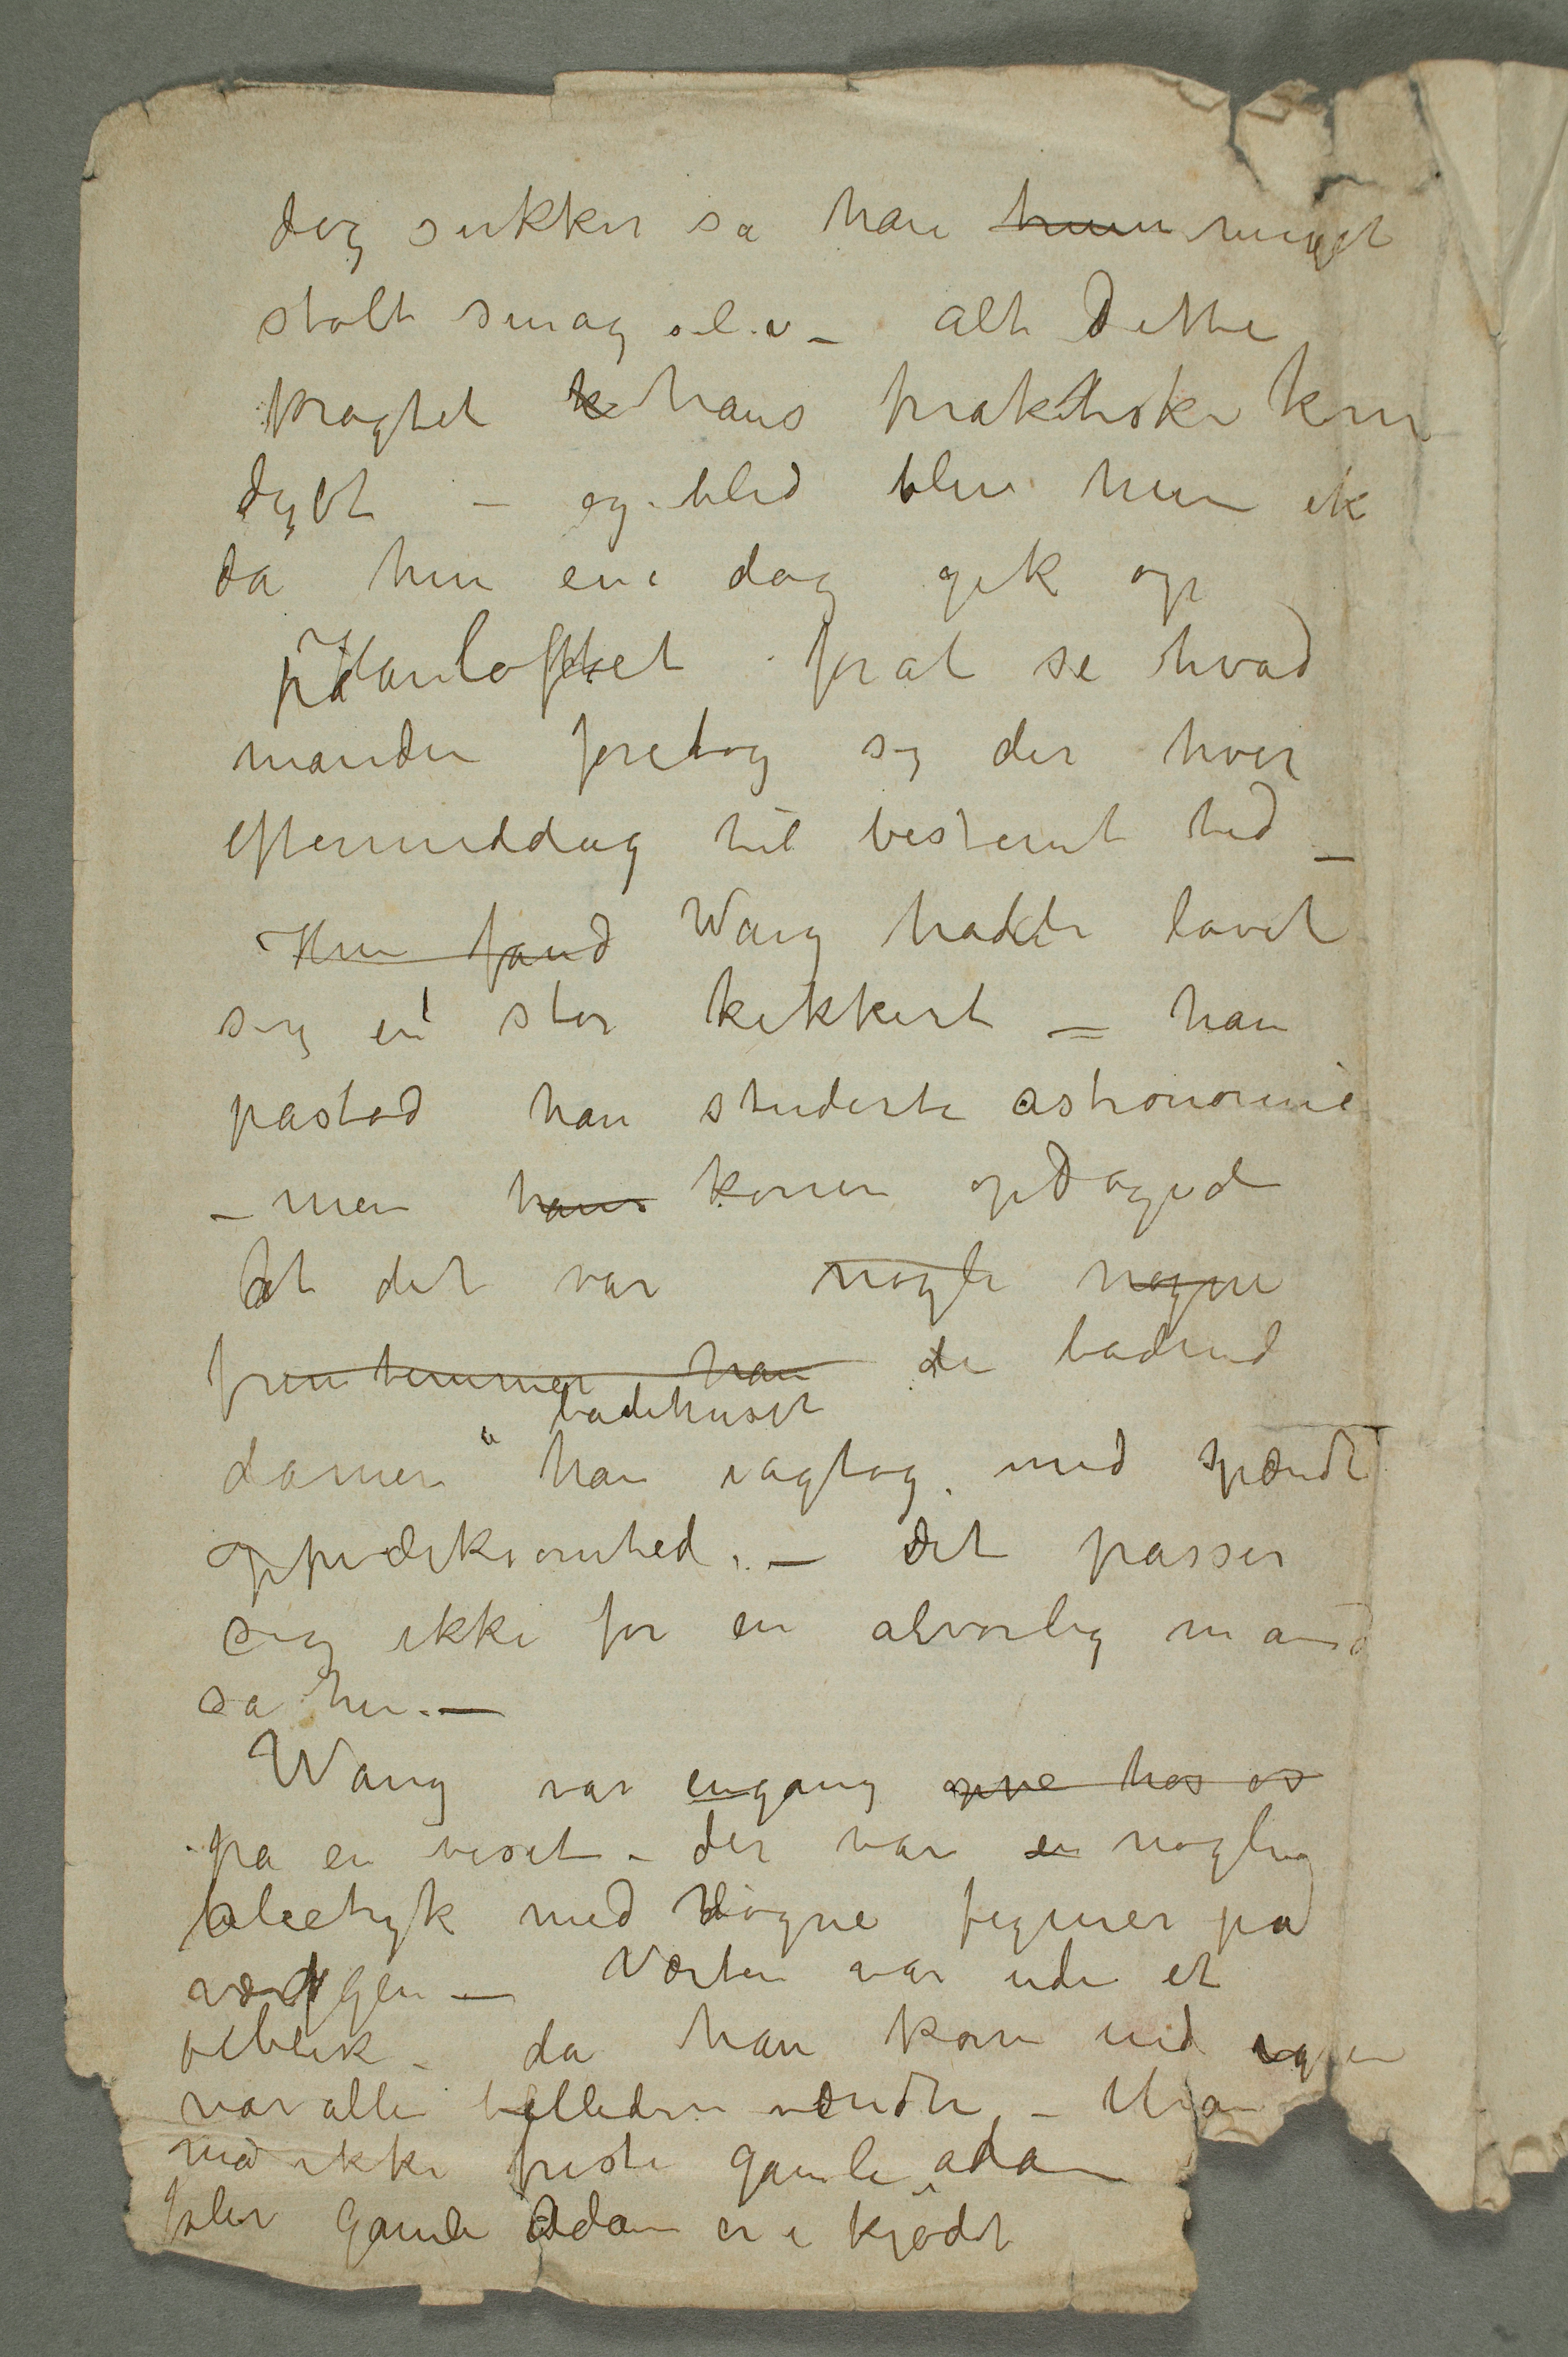 dog sukker sa han hun meget
stolt smag o.l.v – alt dette
kragtet k hans praktiske kone
dybt – og blid blev hun ik
da hun ene dag gik op
på Hanloftet forat se hvad
manden foretog sig der hver
eftermiddag til bestemt tid –
Hun fand Wang hadde lavet
sig en stor kikkert – han
pastod han studerte astronomie
– men hans konen opdaged
At det var nogle nogne
fruentemmer han de badend
badehuset
damer å han iagtog med spændt
oppmærksomhed. – det passer
sig ikke for en alvorlig mand
sa hun. –
Wang var engang opve hos os
pa en visit – der var en nogle
oljetryk med nogne figurer pa
væggen – Værten var ude et
øiblik – da han kom ind igjen
var alle billederne vendte – Man
må ikke friste gamle adam
for gamle Adam er i kjødet